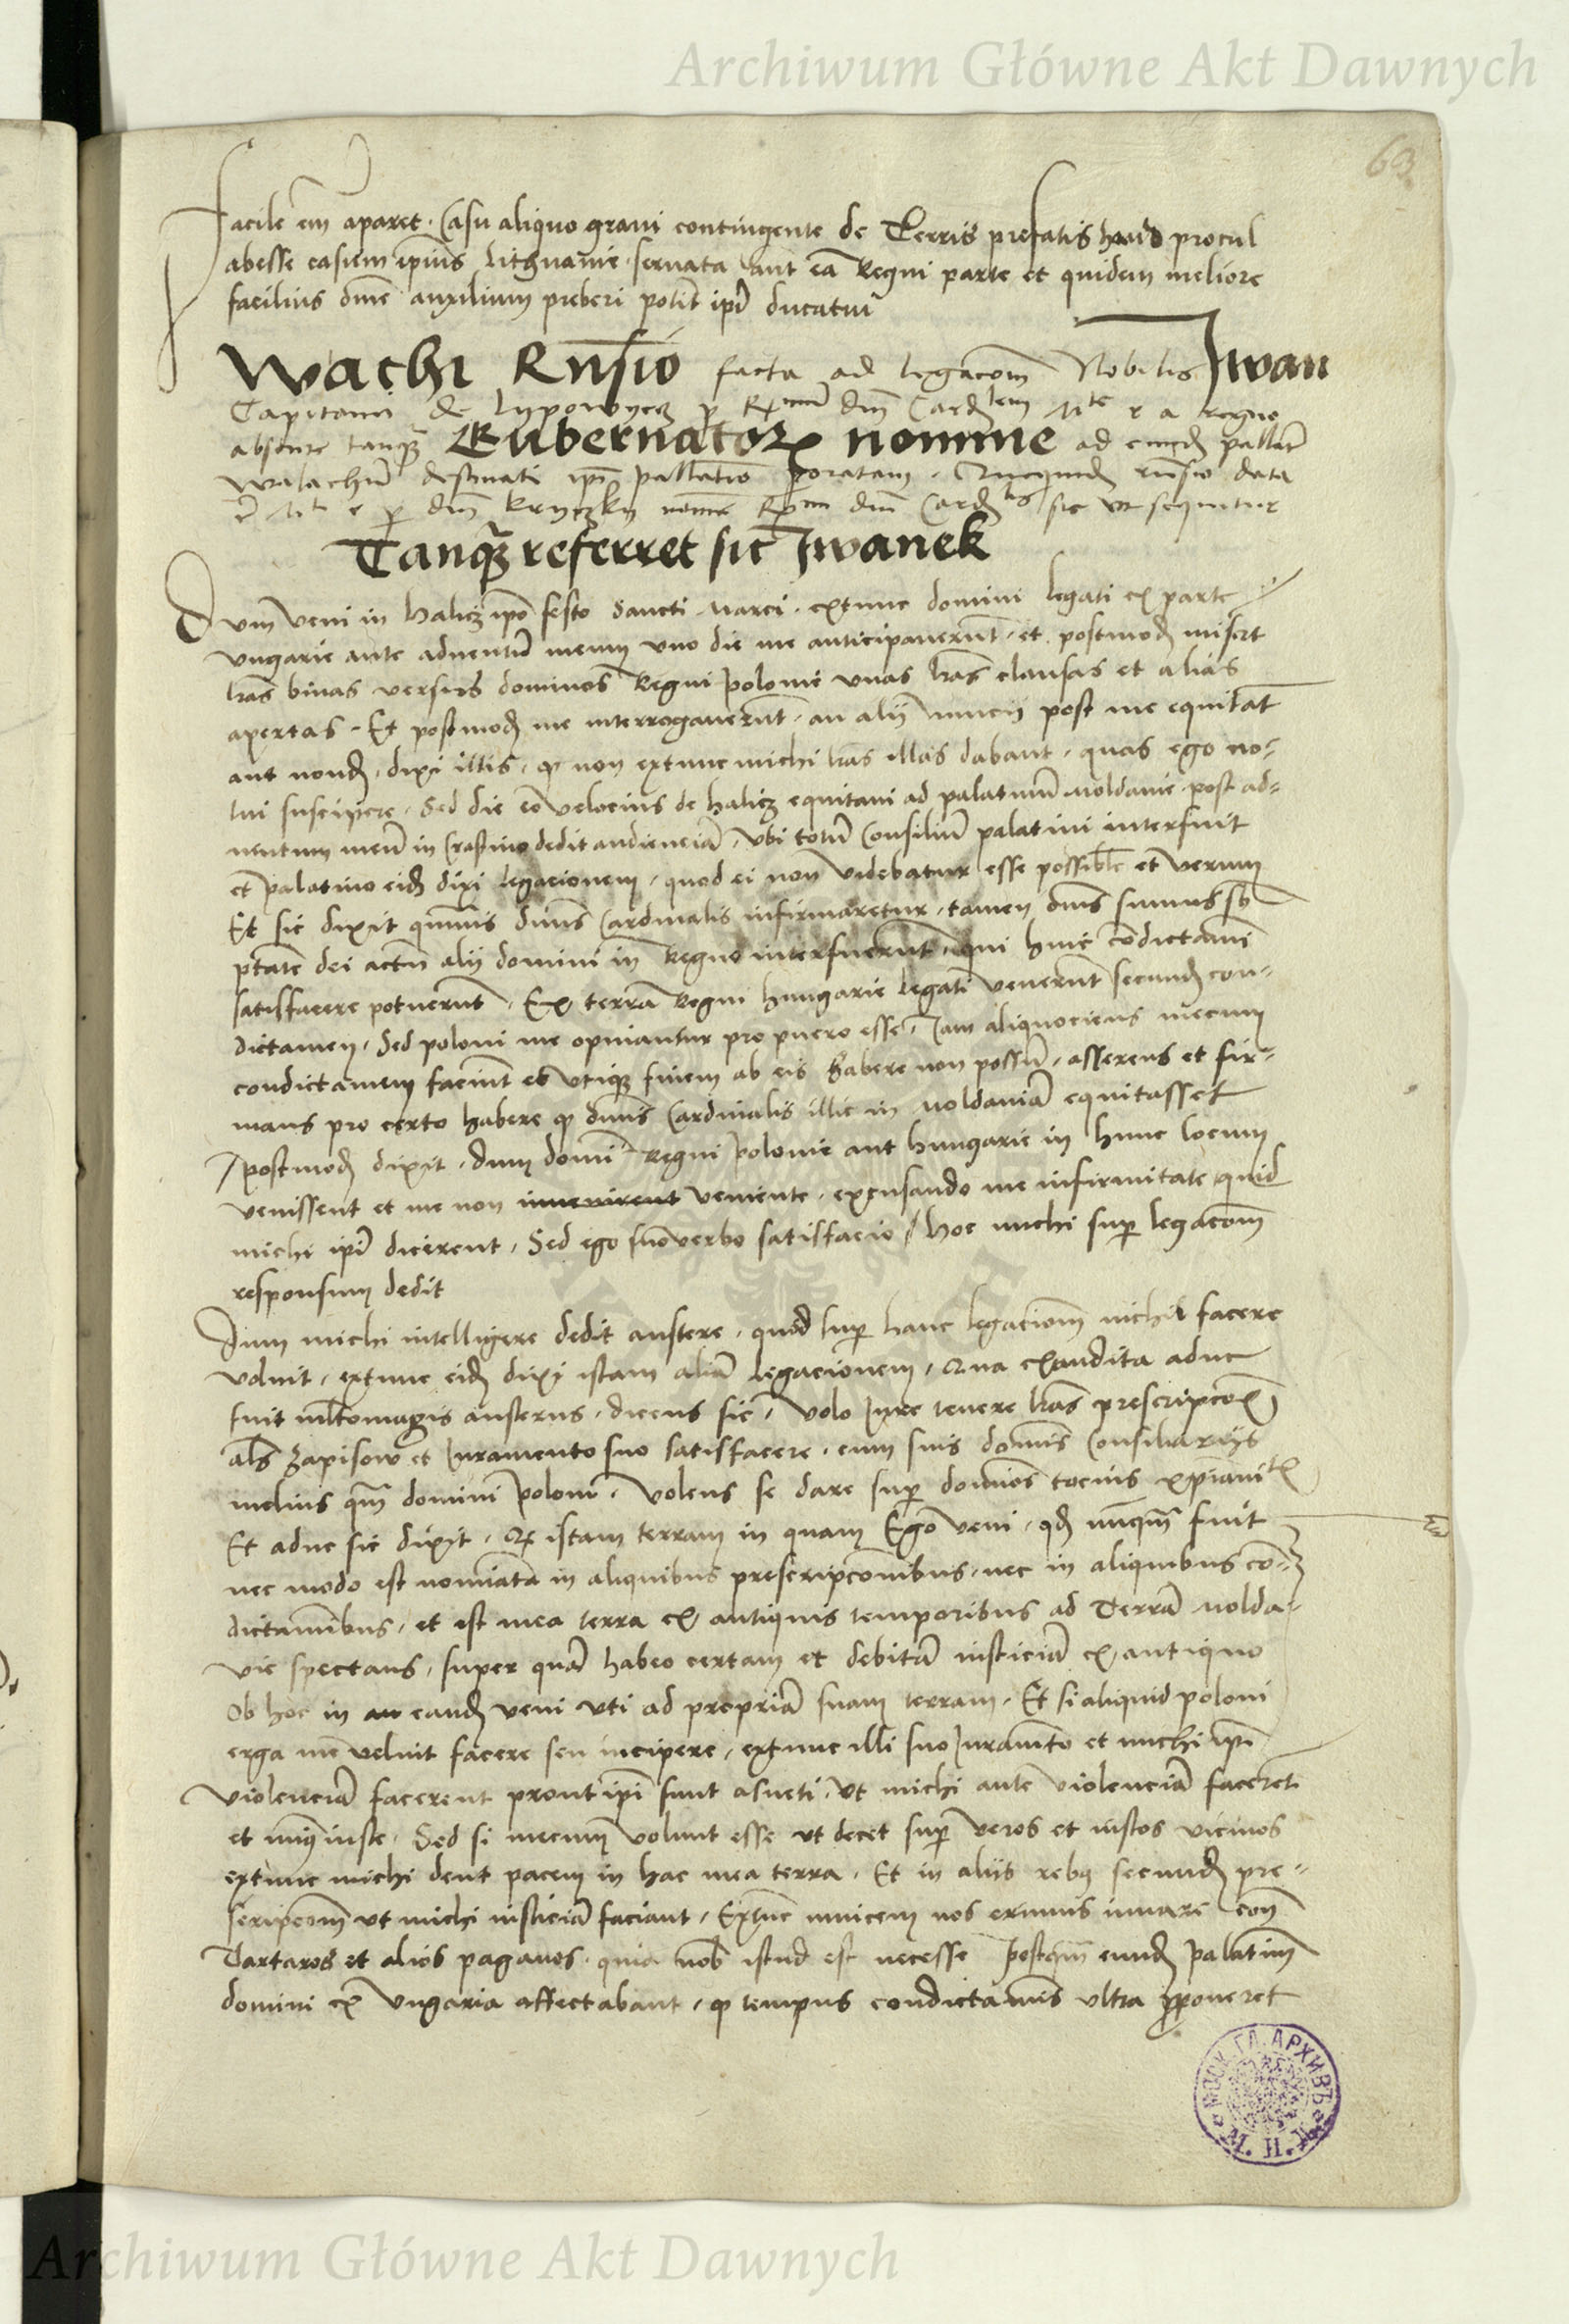 Archiwum Główne Akt Dawnych
63
Facile em̄ aparet. Casu aliquo gravi contingente de Terris prefatis haud procul
abesse easdem Lithuanie servata aut eā Regni parte et quidem meliore
facilius auxilium preberi potit ipī ducatui
Wachi Rn̄sio facta ad legacōm Nobilis Iwan
Capitanei de p Rmū dm̄ Cardlem Mte r a regno
absente tanqȝ Gubernatorē nomine ad eundē pallat
Walachū destinati ipī pallatīo data
p dm̄ Kryczky nomīe Rmi dm̄ Cardlis sic ut sequitur
Tanqȝ referret sic Iwanek
Dum veni in halicz ipō festo Sancti Marci. extunc domini legati ex parte
Ungarie ante adventū meum uno die me anticipaverūt. et postmodū misert
lr̄as binas versus dominos Regni polonie unas lr̄as clausas et alias
apertas. Et postmodū me interrogaverūt. an alij nuncij post me equitāt
aut nondū. dixi illis. qȝ non extunc michi lr̄as illas dabant. quas ego no-
lui suscipere. Sed die eo velocius de halicz equitavi ad palatinū Moldavie. post ad-
ventum meū in Crastino dedit audienciā. ubi totū Consiliū palatini interfuit
et palatino eidē dixi legacionem. quod ei non videbatur esse possibile et verum
Et sic dixit qūmvis dūns Cardinalis infirmaretur. tamen om̄s sumus sb
ptātē dei alij domini in Regno interfuerūt. qui huic cōdictamī
satisfacere potuerūt. Ex terra Regni hungarie legati venerūt secundū con-
dictamen. Sed poloni me opinantur pro puero esse. Iam aliquociens mecum
condictamem faciūt et utiqȝ finem ab eis habere non possū. asserens et fir-
mans pro certo habere qȝ dūns Cardinalis illic in Moldaviā equitasset
postmodū dixit. dum domī Regni polonie aut hungarie in hunc locum
venissent et me non invenirent veniente. excusando me infirmitate quid
michi ipī dicerent. Sed ego suo verbo satisfacio hoc michi sup legacōm
responsum dedit
Dum michi intelligere dedit austere. quod sup hanc legacionm nichil facere
voluit. extunc eidē dixi istam aliā legacionem. Qua exaudita adhuc
fuit ml̄tomagis austerus. dicens sic. Volo Iure tenere lr̄as prescripcoȝ
als Zapisow et Iuramento suo satisfacere. cum suis domīs Consiliarijs
melius qm̄ domini poloni. Volens se dare sup dominos tocius xpianitȝ
Et adhuc sic dixit. istam terram in quam Ego veni. qd nūquā fuit
nec modo est nomiata in aliquibus prescripcōnibus. nec in aliquibus cō-
dictamībus. et est mea terra ex antiquis temporibus ad Terrā Molda-
vie spectans. super quā habeo certam et debitā iusticiā ex antiquo
Ob hoc in an eandē veni uti ad propriā suam terram. Et si aliquid poloni
erga me velint facere seu incipere. extunc illi suo Iuramto et michi ipī
violenciā facerent prout ipī sunt asueti. ut michi ante violenciā facerēt
et inique iniuste. Sed si mecum volunt esse ut decet sup veros et iustos vicinos
extunc michi dent pacem in hac mea terra. Et in aliis rebȝ secundū pre-
scripcōm ut michi iusticiā faciant. Extunc invicem nos erimus iuvare con̄
Tartaros et alios paganos. quia nob istud est necesse postqm̄ eundē palatinū
domini ex Ungaria affectabant. qȝ tempus condictamīs ultra pponeret
МОСК. ГЛ. АРХИВЪ М. И. Д.
Archiwum Główne Akt Dawnych